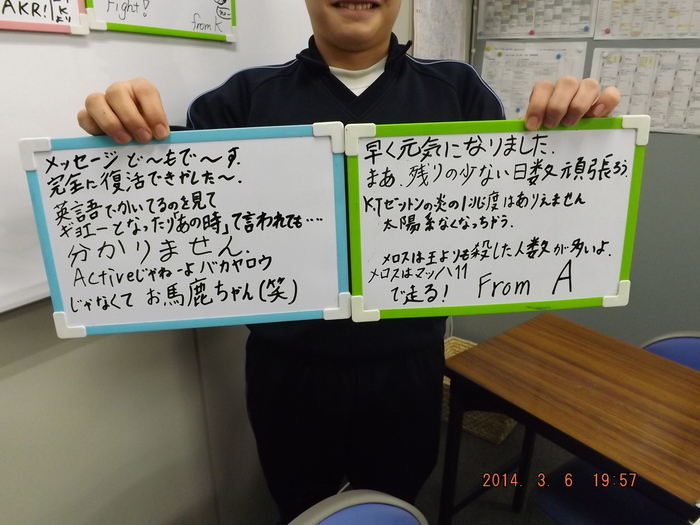 AKR!
Kより
Fight!
from K
メッセージ ど〜もで〜す.
完全に復活できがした〜.
英語でかいてるのを見て
ギョエーとなったり「あの時」て言われても‥‥
分かりません.
Activeじゃねーよバカヤロウ
じゃなくて お馬鹿ちゃん(笑)
早く元気になりました.
まあ.残りの少ない日数頑張ろう.
K.T ゼットンの炎の1兆度はありえません
太陽系なくなっちゃう.
メロスは王よりも殺した人数が多いよ.
メロスはマッハ11
で走る! From A
2014. 3. 6 19:57